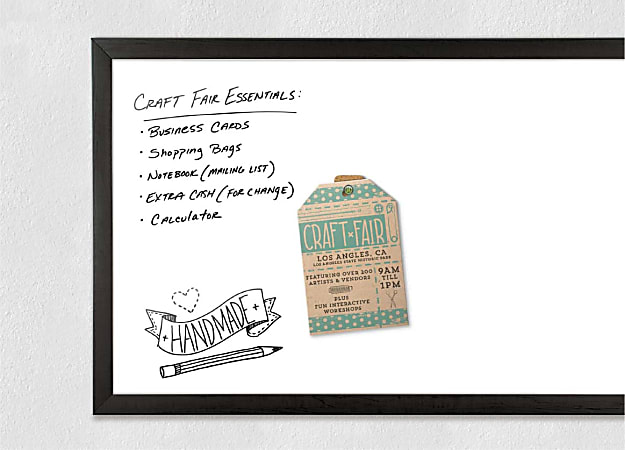 CRAFT FAIR ESSENTIALS:
• BUSINESS CARDS
• Shopping BAgs
• NOTEBOOK (MAILING LIST)
• EXTRA CASH (FOR CHANGE)
• CALCULATOR
CRAFT FAIR
LOS ANGLES, CA
LOS ANGELES STATE HISTORIC PARK
FEATURING OVER 200
ARTISTS & VENDORS
PLUS
FUN INTERACTIVE
WORKSHOPS
9AM
TILL
1PM
HANDMADE